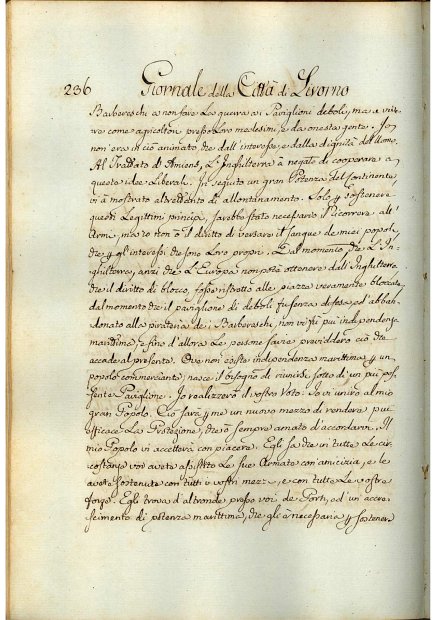 236 Giornale della Città di Livorno
Barbereschi a non fare la guerra ai Paviglioni deboli, ma a vive-
re come agricoltori presso loro medesimi, e da onesta gente. Io
non era in ciò animato, che dall'interesse, e dalla dignità dell'Uomo.
Al Trattato di Amiens, L'Inghilterra à negato di cooperare a
queste idee Liberali. In seguito un gran Potenza del Continente
vi à mostrato altrettanto di allontanamento. Solo p sostenere
questi Legittimi principj, sarebbe stato necessario Ricorrere all'
Armi, ma io non ò il dritto di versare il sangue de miei popoli,
che p gl'interessi che sono Loro proprj. Dal momento, che L'In-
ghilterra, anzi che L'Europa non potè ottenere dall'Inghilterra
che il diritto di blocco, fosse ristretto alle piazze veramente bloccate,
dal momento che il paviglione di deboli fu senza difesa, ed abban-
donato alla pirateria de i Barbereschi, non vi fu più indipendenza
marittima, e fino d'allora Le persone savie previddero ciò che
accade al presente. Ove non esiste indipendenza marittima p un
popolo commerciante, nasce il bisogno di riunirsi sotto di un più pos-
sente Paviglione. Io realizzerò il vostro Voto: Io vi unirò al mio
gran Popolo. Ciò sarà p me un nuovo mezzo di rendere più
efficace La Protezione, che ò sempre amato d'accordarvi. Il
mio Popolo vi accetterà con piacere. Egli sa che in tutte Le cir-
costanze voi avete assistito Le sue Armate con amicizia, e le
avete sostenute con tutti i vostri mezzi, e con tutte Le vostre
forze. Egli trova d'altronde presso voi de Porti, ed un accre-
scimento di potenza marittima, che gli è necessaria p sostenere